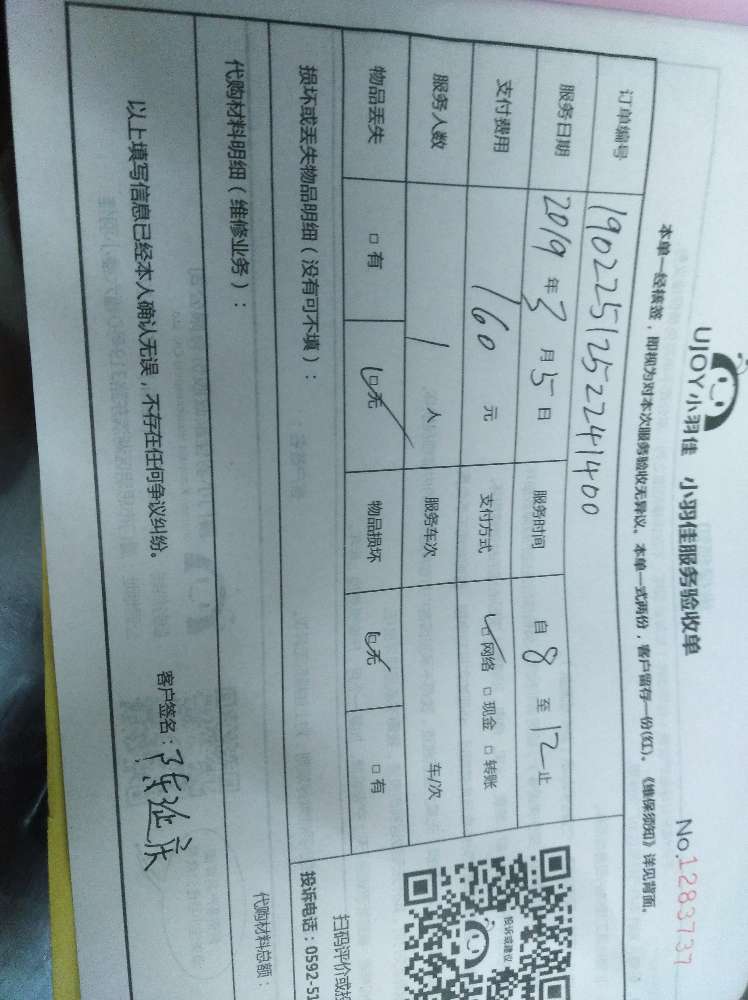 UJOY小羽佳 小羽佳服务验收单
No.1283737
本单一经核签，即视为对本次服务验收无异议。本单一式两份，客户留存一份(红)。《维保须知》详见背面。
订单编号 1902251252241400
服务日期 2019年3月5日 服务时间 自8至12止
支付费用 160元 支付方式 网络 □现金 □转账
服务人数 1人 服务车次 车/次
物品丢失 □有 □无 物品损坏 □无 □有
损坏或丢失物品明细（没有可不填）：
投诉或建议
扫码评价或投
投诉电话：0592-51
代购材料明细（维修业务）：
代购材料总额：
以上填写信息已经本人确认无误，不存在任何争议纠纷。
客户签名：陈延庆